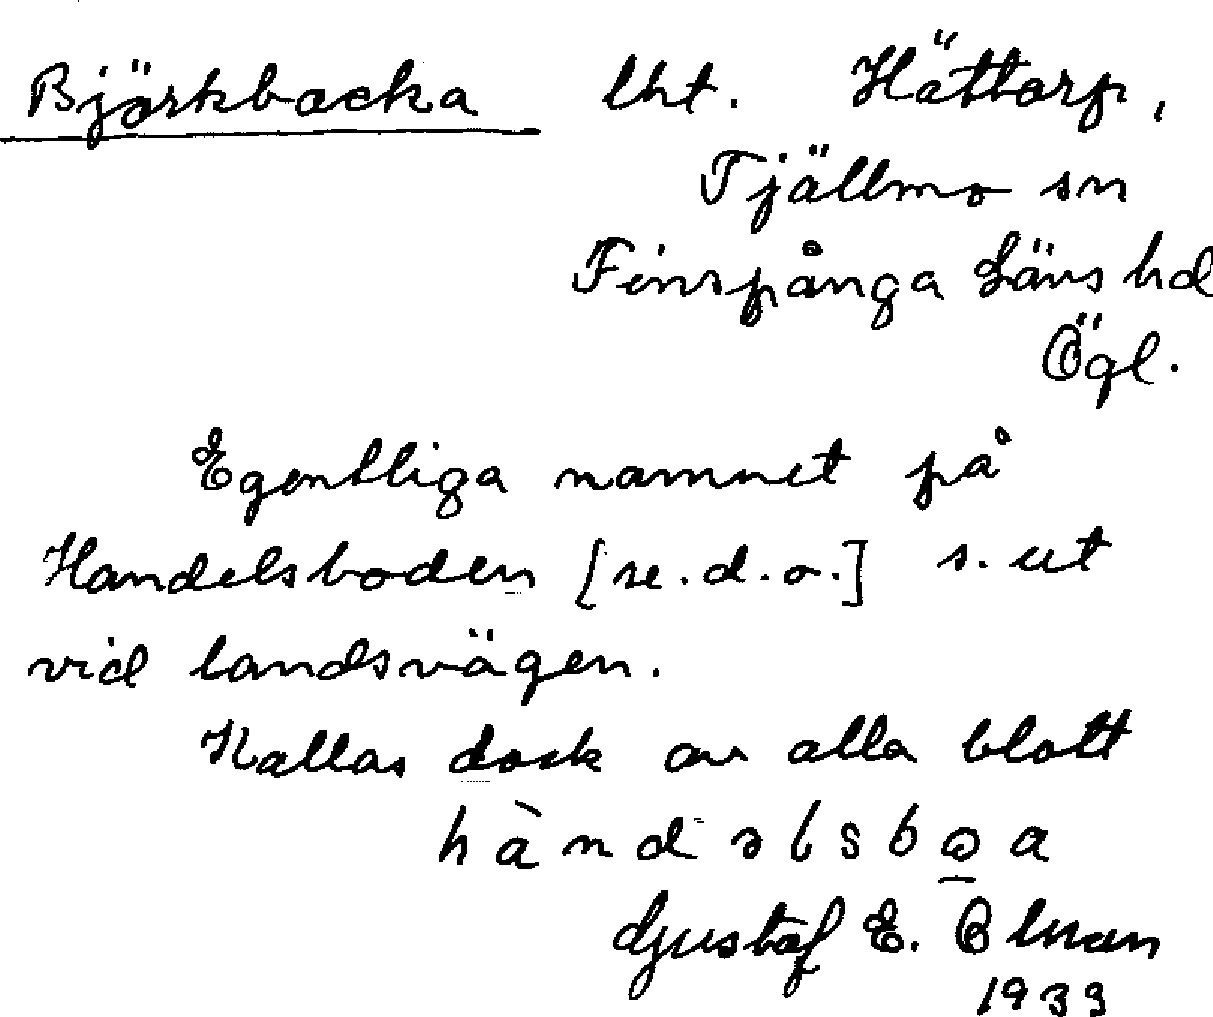 Björkbacka lht. Hättorp,
Tjällmo sn
Finspånga Läns hd
Ögl.
Egentliga namnet på
Handelsboden [se.d.o.] s. ut
vid landsvägen.
Kallas dock av alla blott
hàndəlsbo̲a
Gustaf E. Olman
1933